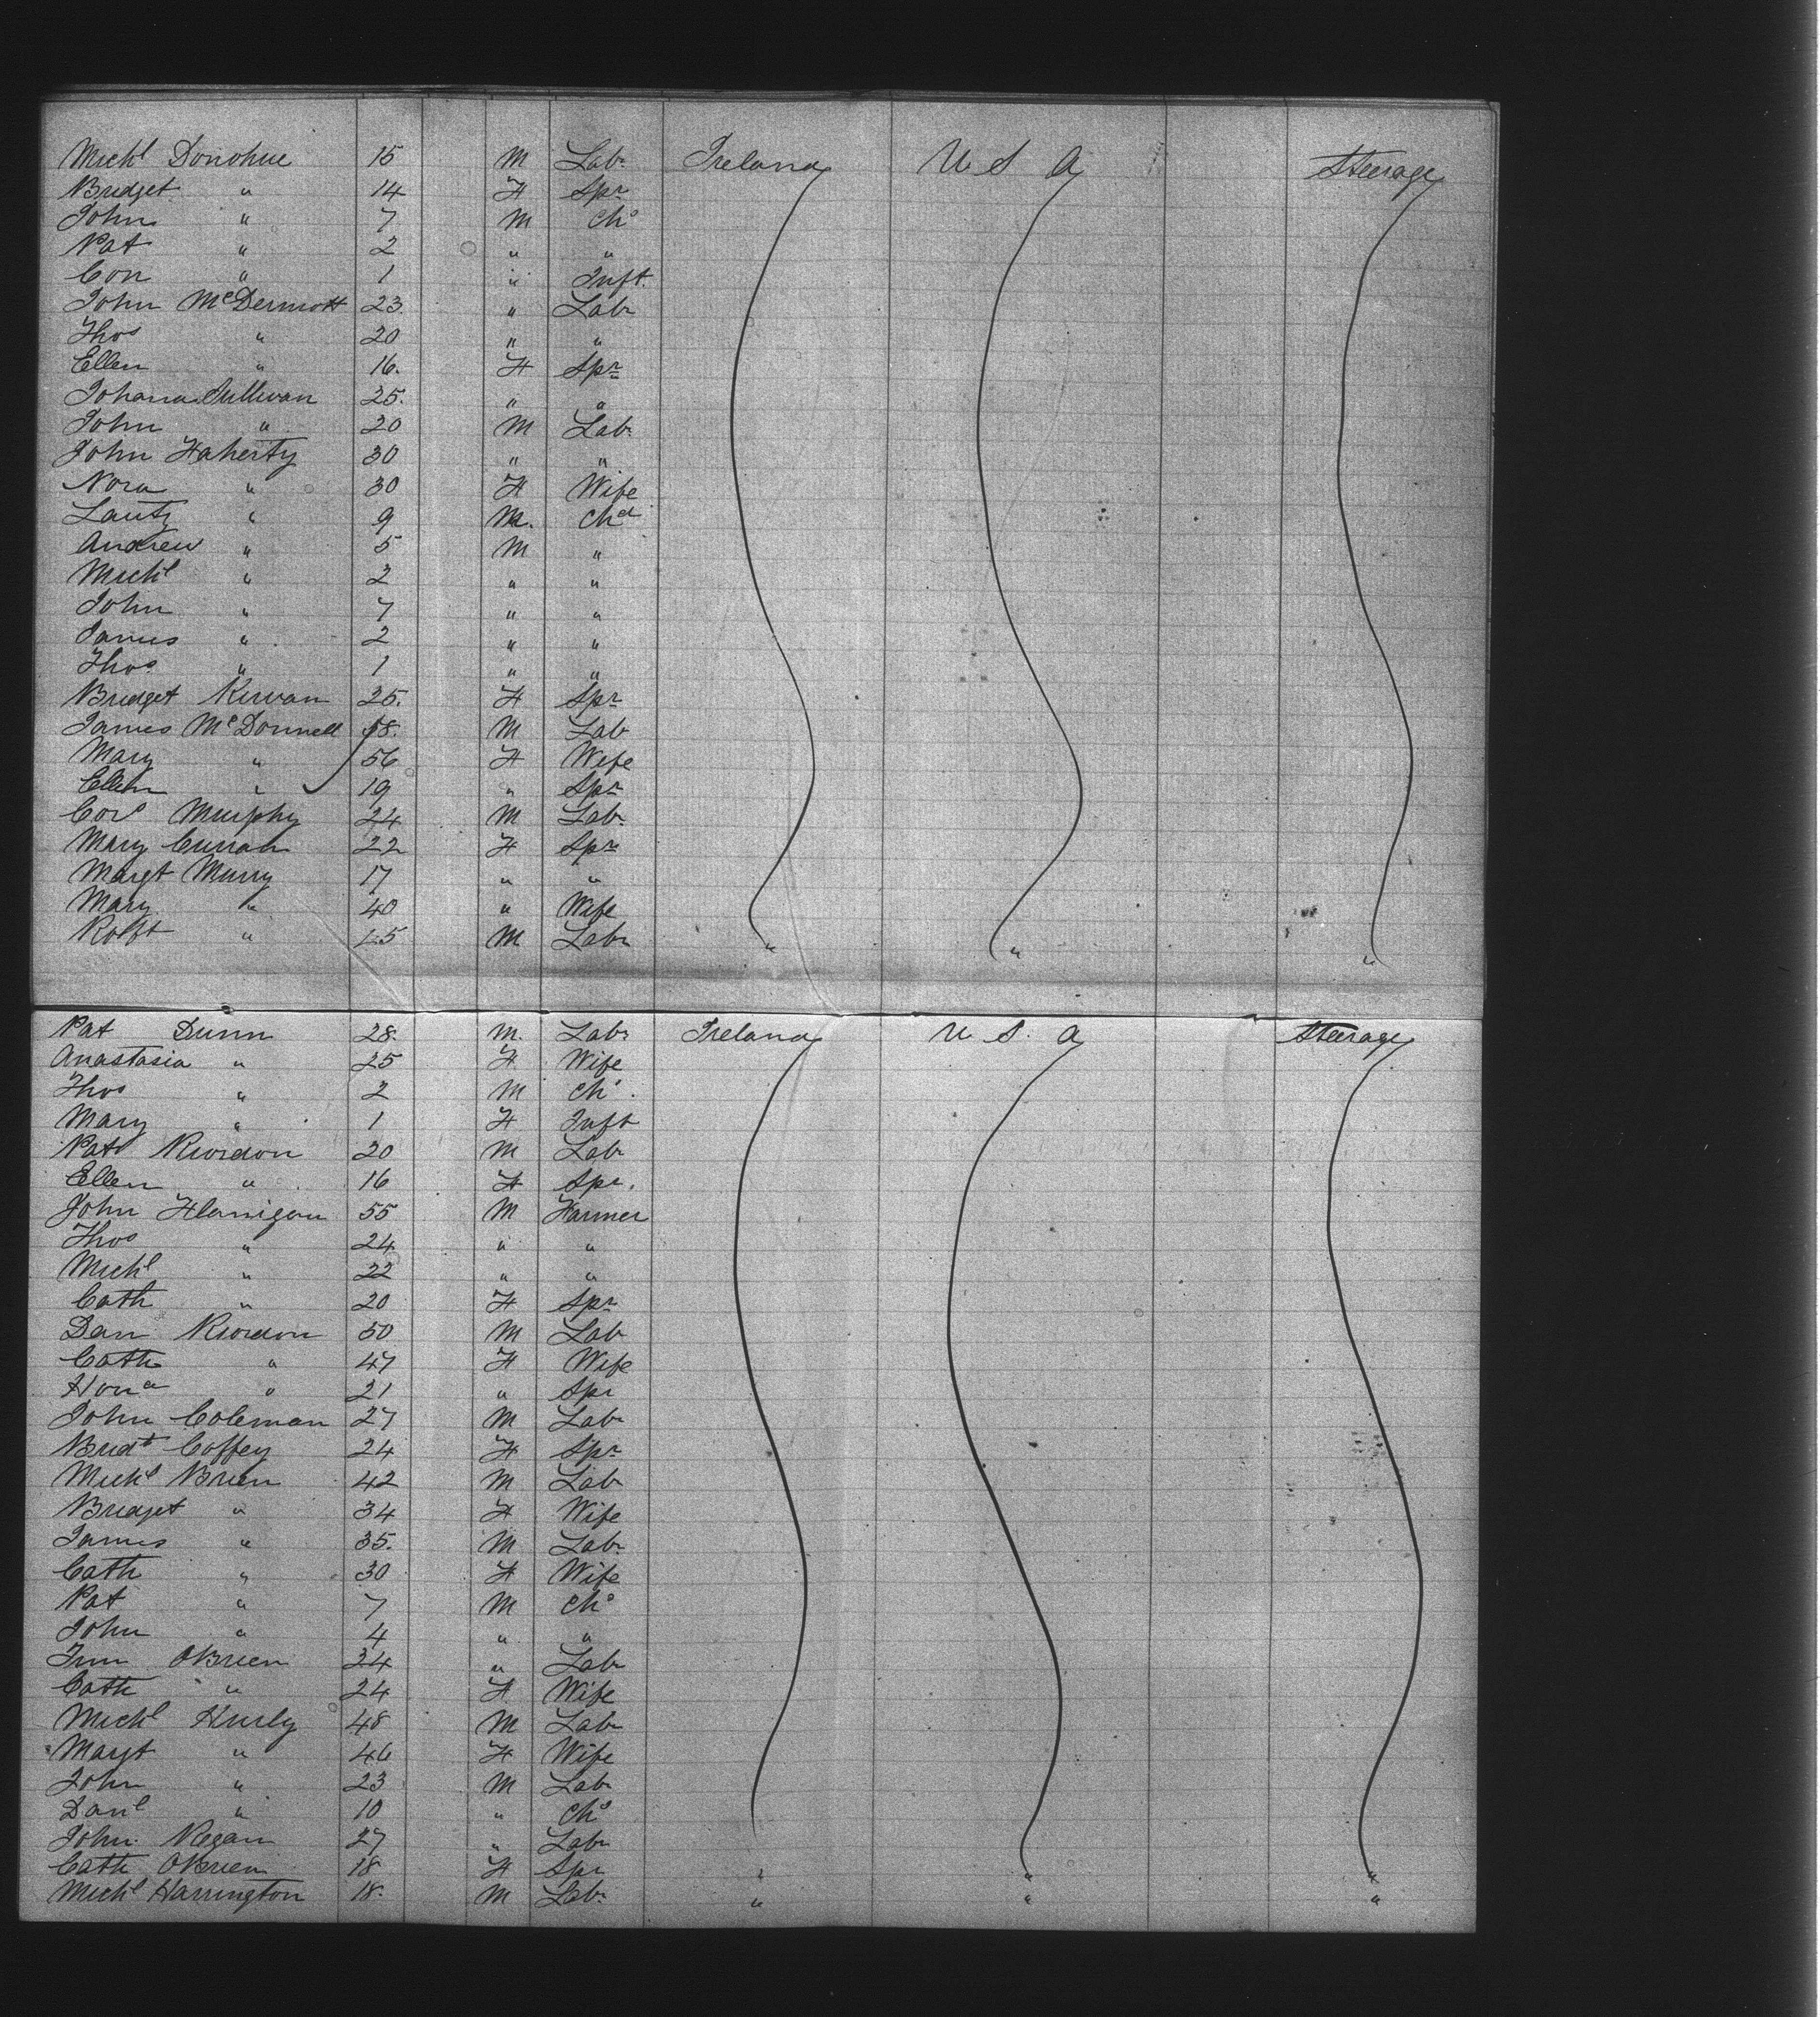 Michl Donohue 15 M Labr Ireland U S A Steerage
Bridget " 14 F Spr
John " 7 M Chd
Pat " 2 " "
Con " 1 " Inft.
John McDermott 23 " Labr
Thos " 20 " "
Ellen " 16. F Spr
Johana Sullivan 25. " "
John " 20 M Labr
John Faherty 30 " "
Nora " 30 F Wife
Lauty " 9 M. Chd
Andrew " 5 M "
Michl " 2 " "
John " 7 " "
James " 2 " "
Thos " 1 " "
Bridget Kirwan 25. F Spr
James McDonnell 58. M Lab
Mary " 56 F Wife
Ellen " 19 " Spr
Corl Murphy 24 M Labr
Mary Curran 22 F Spr
Margt Murry 17 " "
Mary " 40 " Wife
Robt " 45 M Labr " " "
Pat Dunn 28. M. Labr Ireland U S. A Steerage
Anastasia " 25 F Wife
Thos " 2 M Chd.
Mary " 1 F Inft
Pat Riordon 20 M Labr
Ellen " 16 F Spr.
John Flanigan 55 M Farmer
Thos " 24 " "
Michl " 22 " "
Cath " 20 F Spr
Dan Riordon 50 M Lab
Cath " 47 F Wife
Hona " 21 " Spr
John Coleman 27 M Labr
Bridt Coffey 24 F Spr
Michl Brien 42 M Labr
Bridget " 34 F Wife
James " 35. M Labr
Cath " 30 F Wife
Pat " 7 M Chd
John " 4 " "
OBrien 24 " Labr
Cath " 24 F Wife
Michl Hurly 48 M Labr
Margt " 46 F Wife
John " 23 M Labr
Danl " 10 " Chd
John Regan 27 " Labr
Cath OBrien 18 F Spr " " "
Michl Harrington 18. M Labr " " "